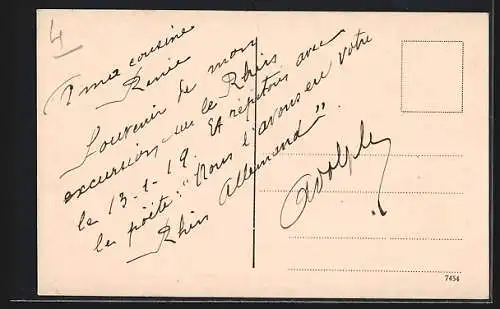 4
A ma cousine
Renée
Souvenir de mon
excursion sur le Rhin
le 13-1-19. Et répétons avec
le poëte: "Nous l'avons eu votre
Rhin Allemand".
Adolphe
7454